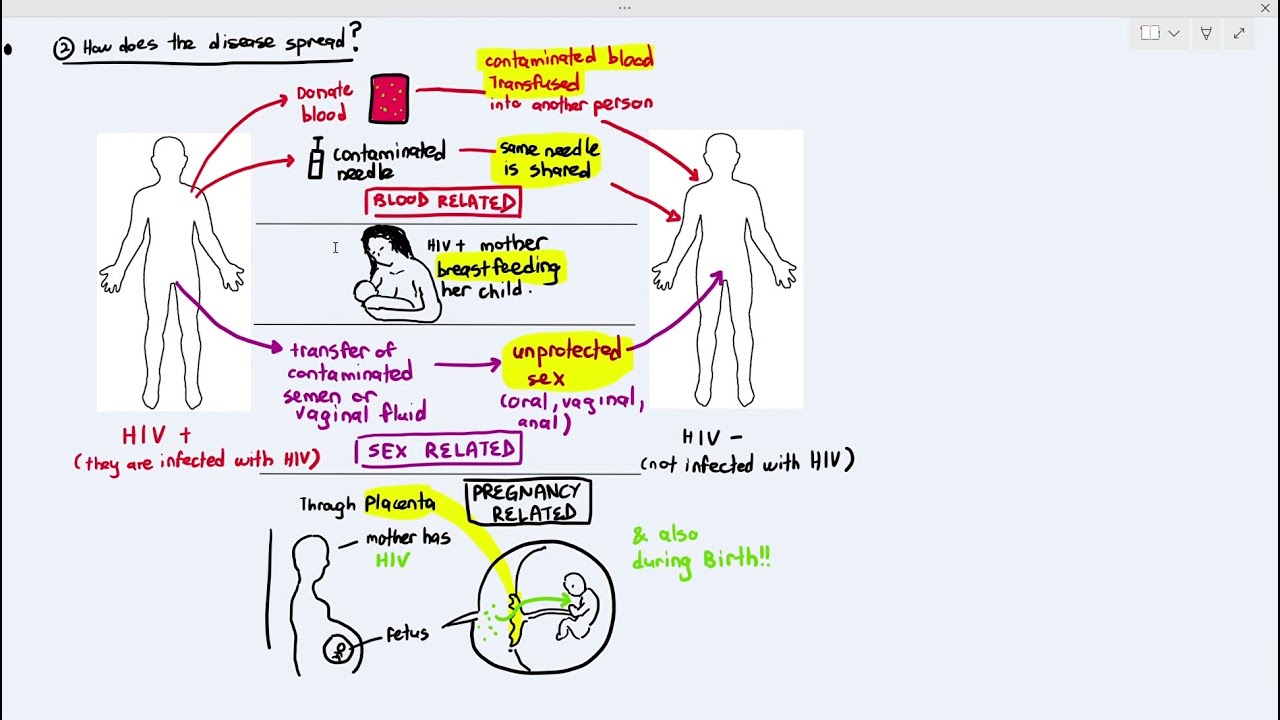 ② How does the disease spread?
Donate
blood
contaminated blood
Transfused
into another person
contaminated
needle
same needle
is shared
BLOOD RELATED
HIV+ mother
breastfeeding
her child.
transfer of
contaminated
semen or
vaginal fluid
unprotected
sex
(oral, vaginal,
anal)
SEX RELATED
HIV +
(they are infected with HIV)
HIV -
(not infected with HIV)
Through Placenta
PREGNANCY
RELATED
mother has
HIV
fetus
& also
during Birth!!